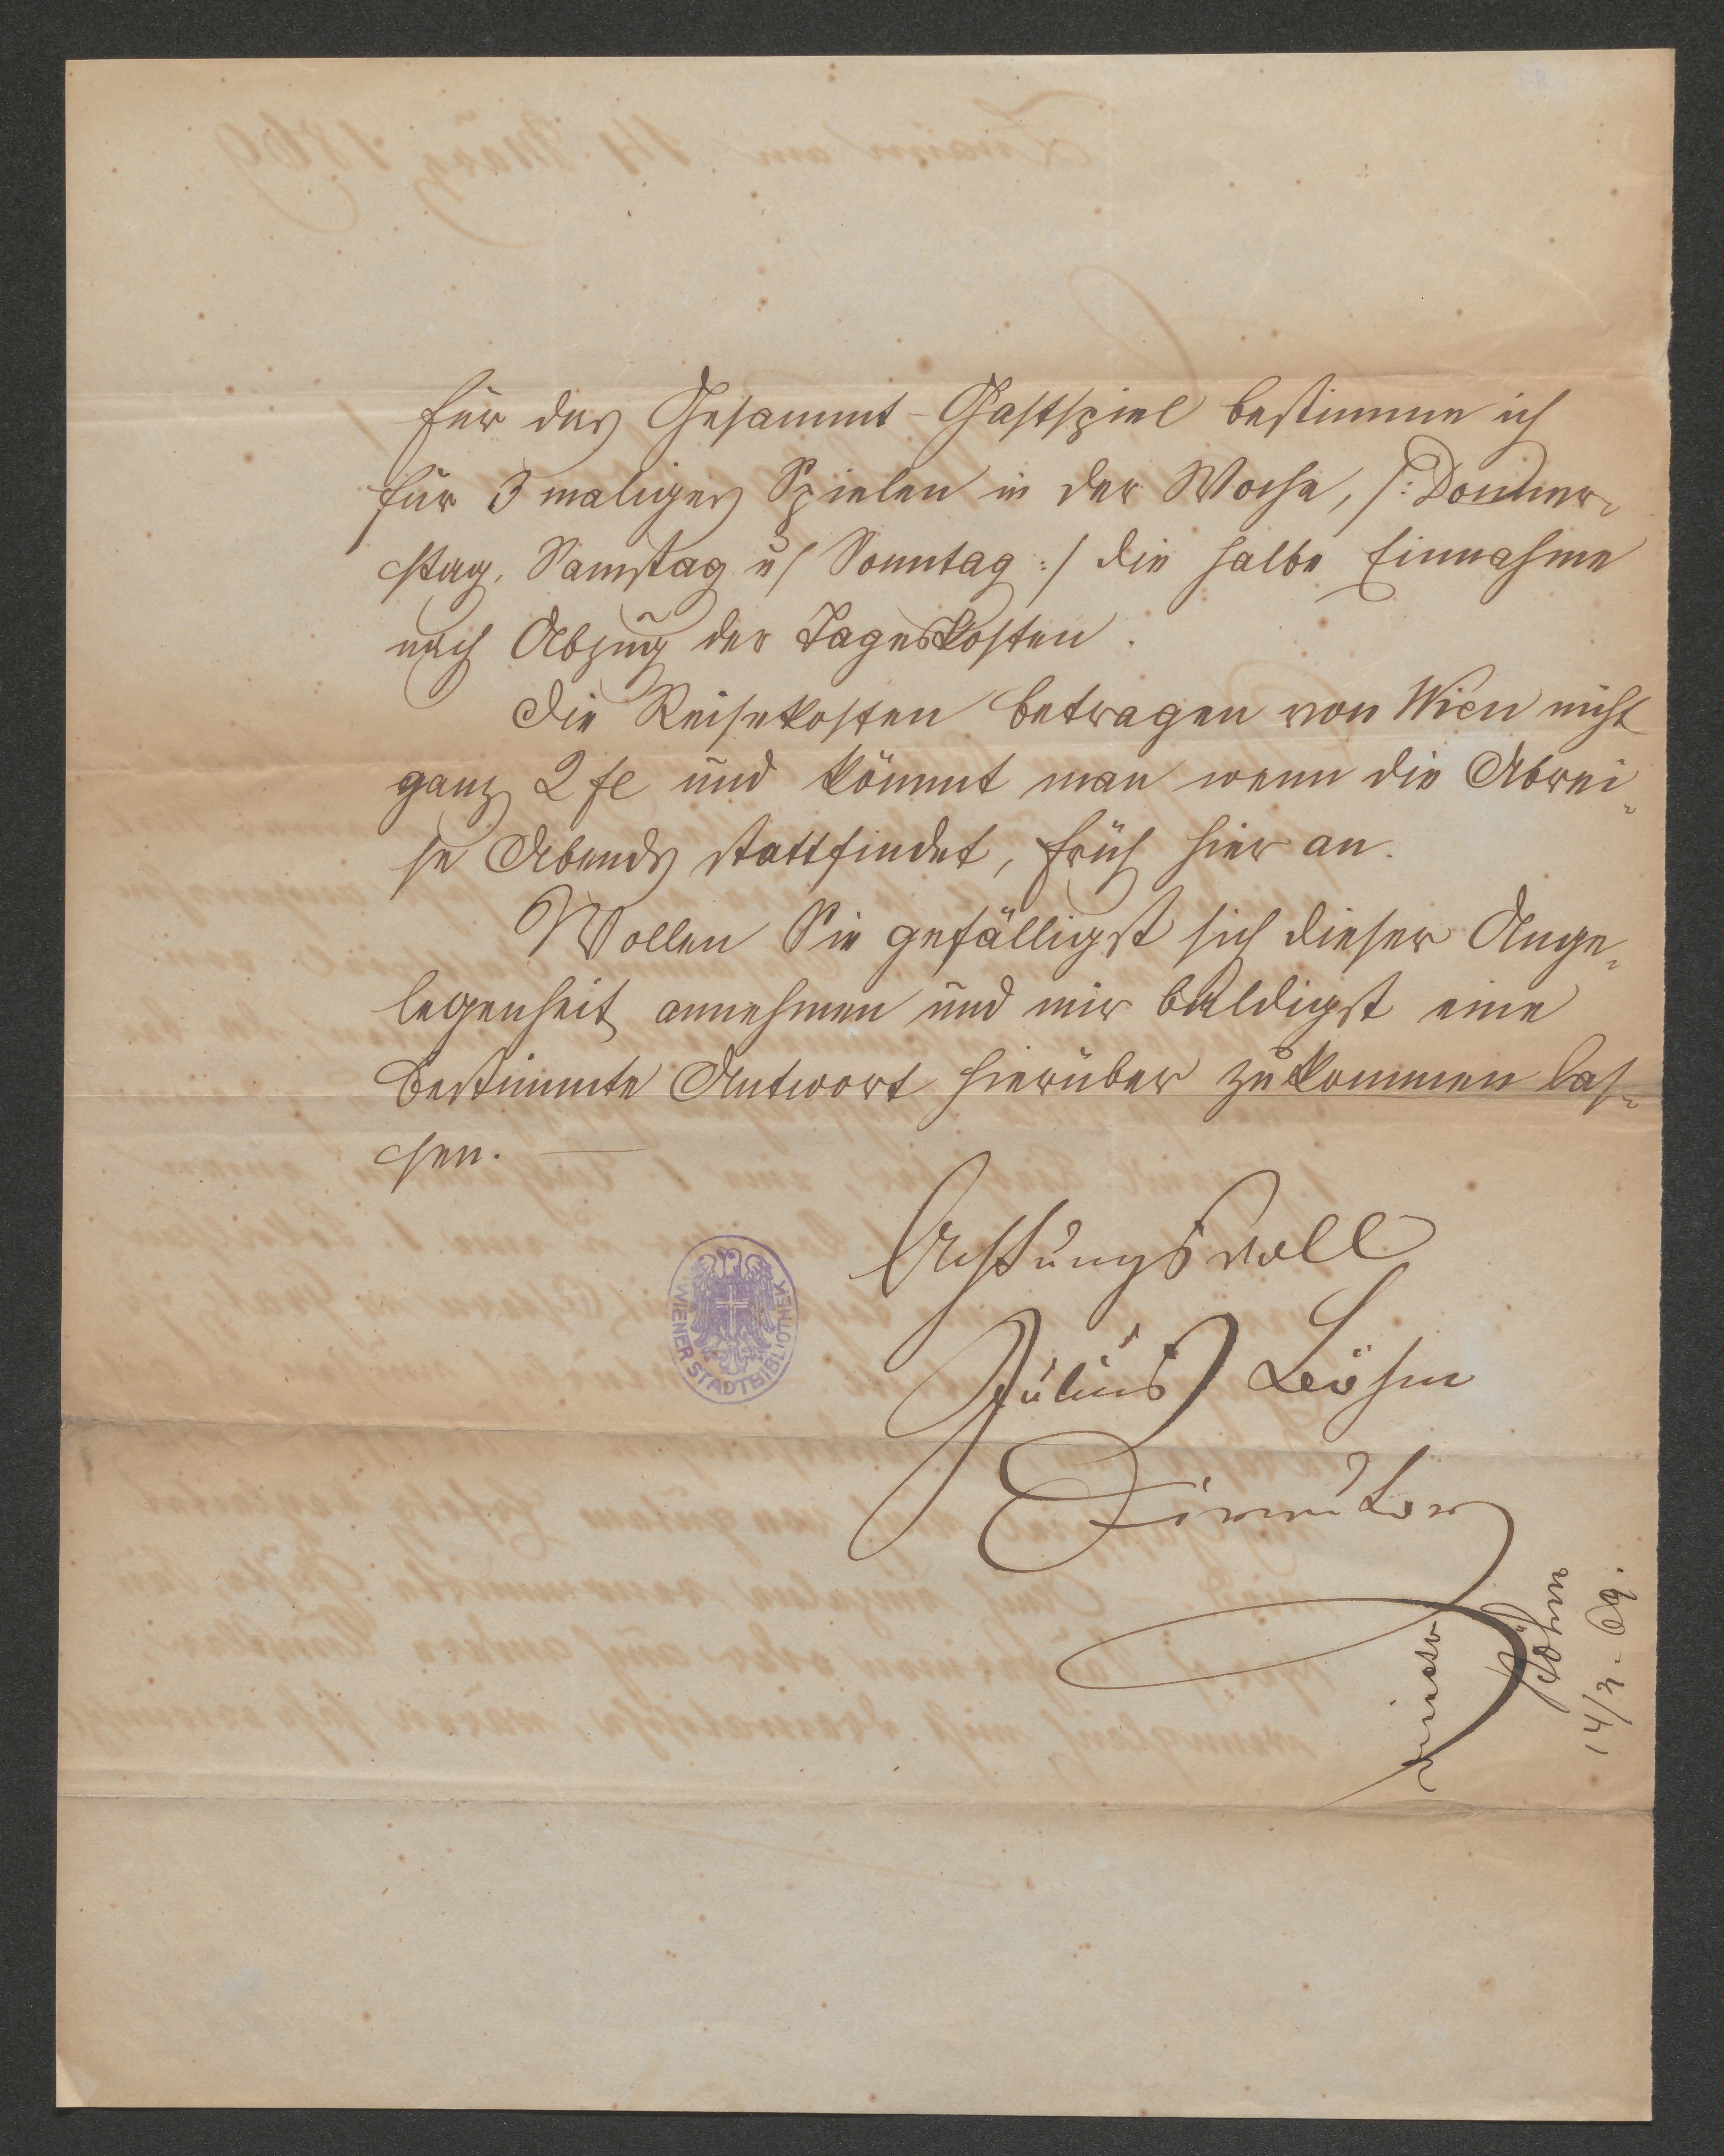 Für das Gesammt-Gastspiel bestimme ich
für 3 maliges Spielen in der Woche, /: Donner-
stag, Samstag u/ Sonntag :/ die halbe Einnahme
nach Abzug der Tageskosten.
Die Reisekosten betragen von Wien nicht
ganz 2 fl und kömmt man wenn die Abrei-
se Abends stattfindet, früh hier an.
Wollen Sie gefälligst sich dieser Ange-
legenheit annehmen und mir baldigst eine
bestimmte Antwort hierüber zukommen las-
sen. —
Achtungsvoll
Julius Böhm
Direktor
WIENER STADTBIBLIOTHEK
Böhm
14/3. 69.